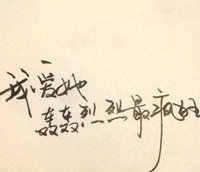 我爱她
轰轰烈烈最疯狂